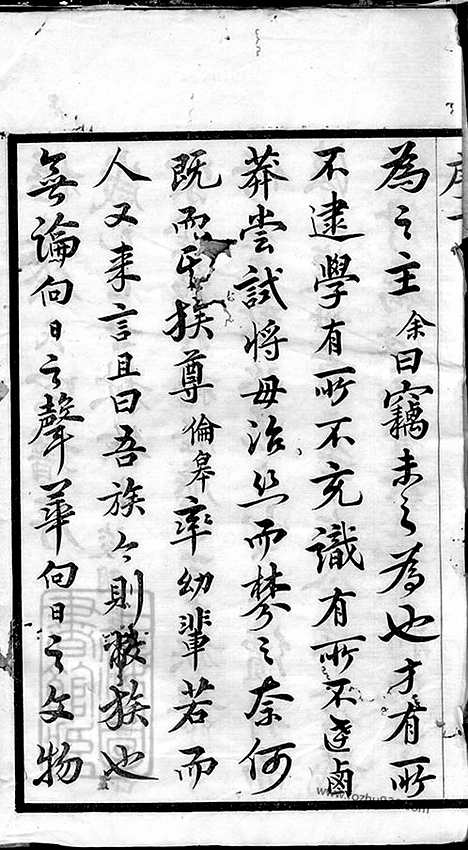 為之主余曰竊未之為也才有所
不逮學有所不充識有所不逹鹵
莽嘗試將毋治丝而棼之奈何
既而氏族尊倫皋率幼輩若而
人又来言且曰吾族今則敝族也
無論向日之聲華向日之文物